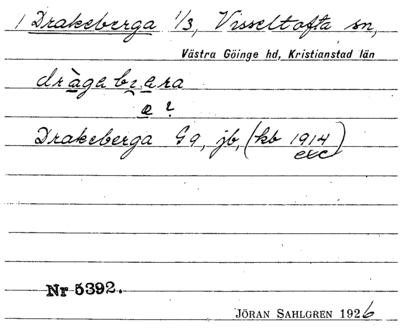 1 Drakeberga 1/3, Visseltofta sn,
Västra Göinge hd, Kristianstad län
dràgabi̯ara
a ?
Drakeberga Gg, jb, (kb 1914)
exc
Nr 5392.
JÖRAN SAHLGREN 1926